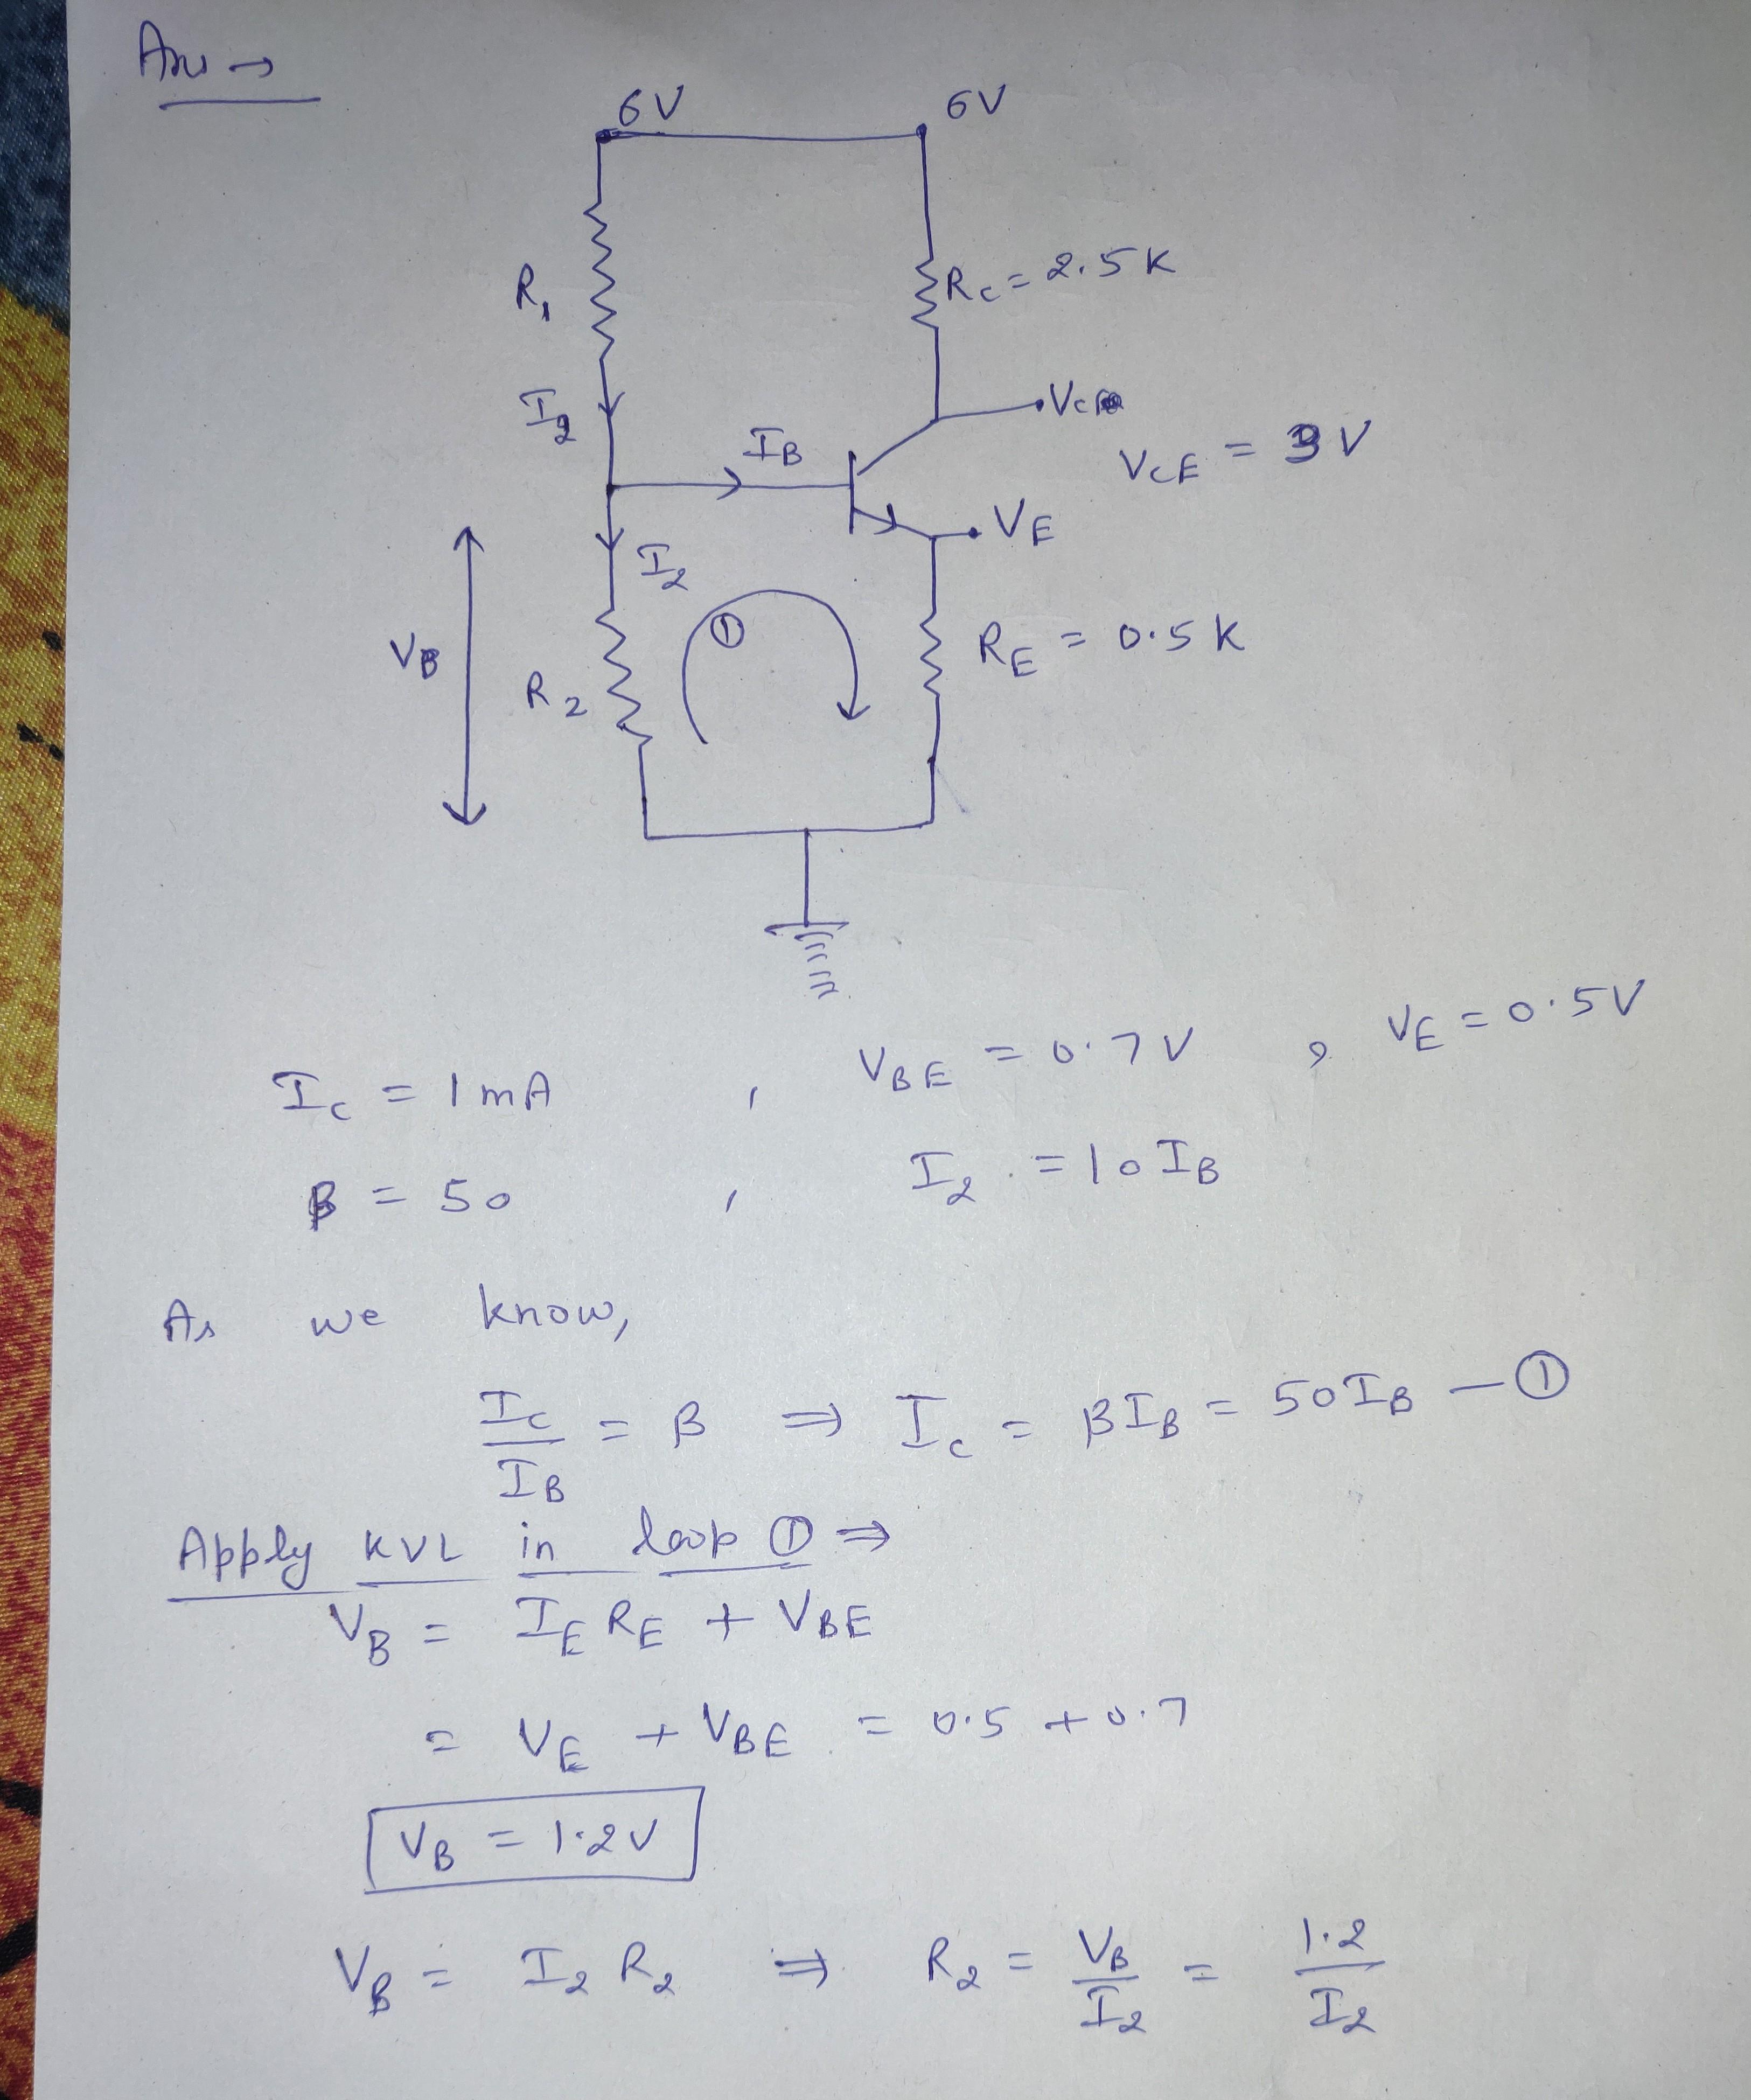 Ans →
6V 6V
R₁
R_C = 2.5K
I₂
I_B
V_C
V_CE = 3V
V_E
I₂
①
V_B
R₂
R_E = 0.5K
I_C = 1mA , V_BE = 0.7V , V_E = 0.5V
β = 50 , I₂ = 10I_B
As we know,
I_C/I_B = β ⇒ I_C = βI_B = 50I_B — ①
Apply KVL in loop ① ⇒
V_B = I_E R_E + V_BE
= V_E + V_BE = 0.5 + 0.7
V_B = 1.2V
V_B = I₂ R₂ ⇒ R₂ = V_B/I₂ = 1.2/I₂